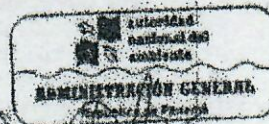 autoridad
nacional del
ambiente
ADMINISTRACIÓN GENERAL